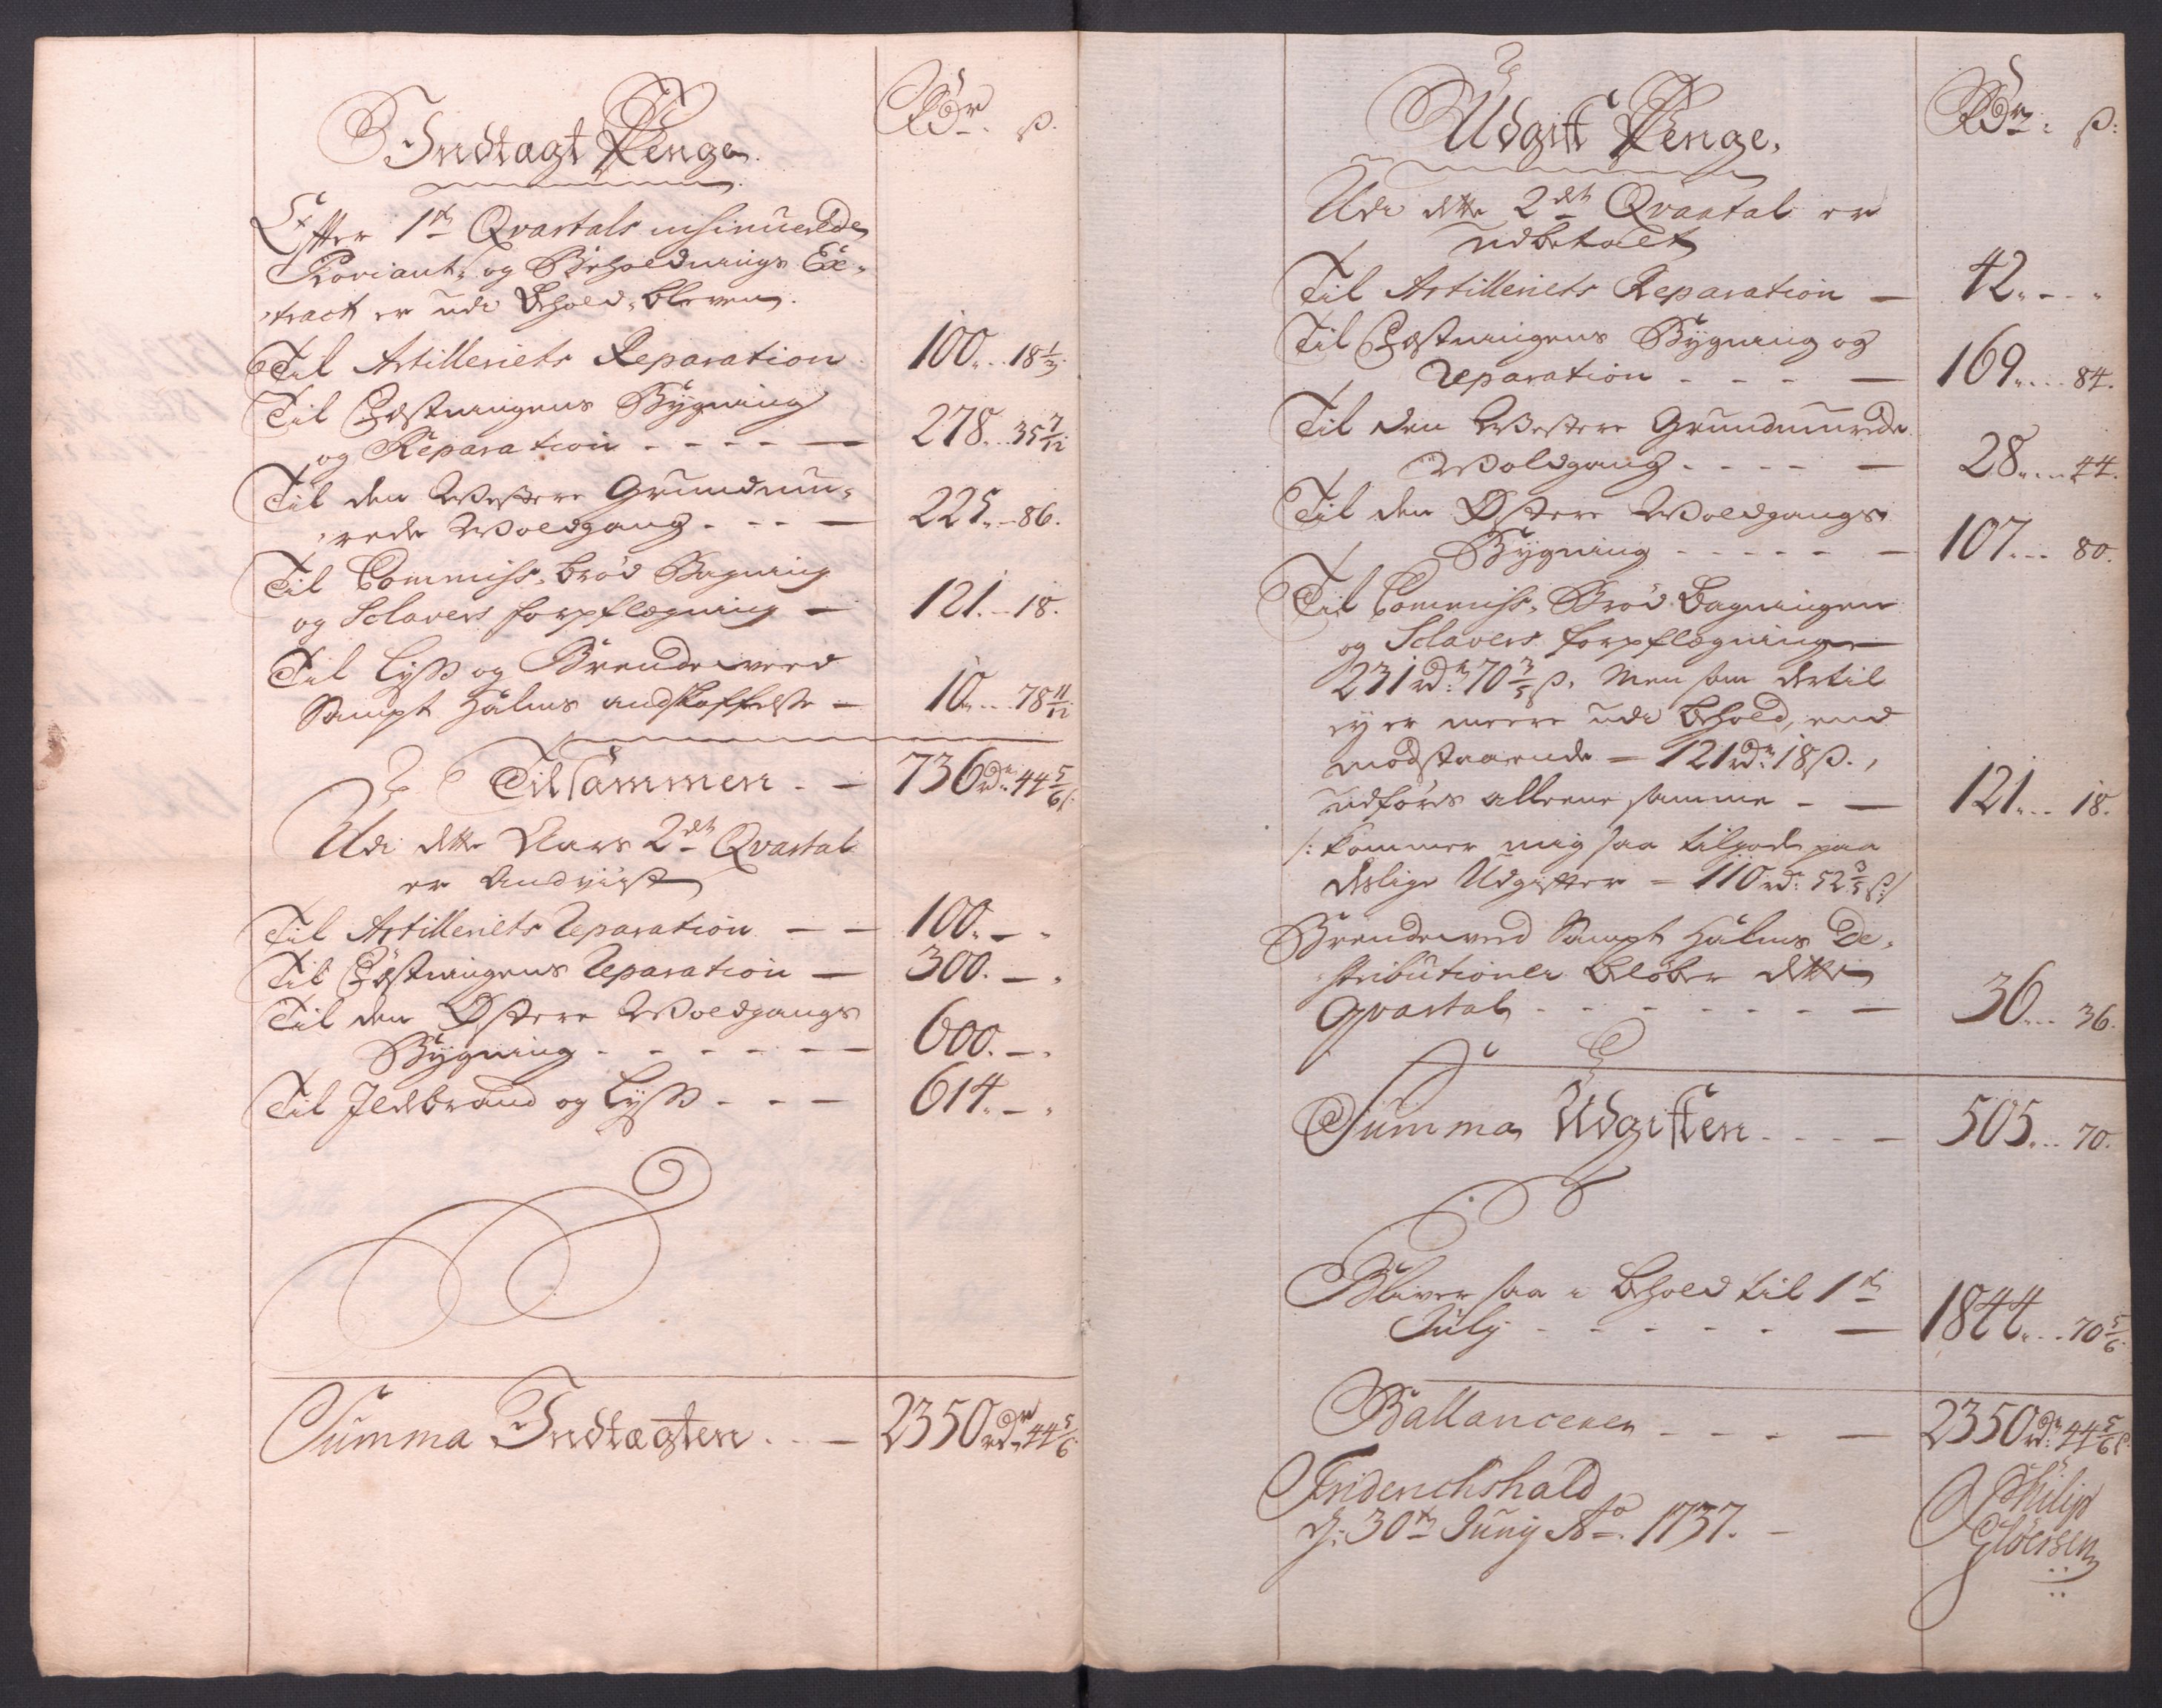 Indtægt Penge.
Rdr. ß.
Efter 1te Qvartals insinuerede
Proviant- og Beholdnings Ex-
tract er udi Behold bleven.
Til Artilleriets Reparation 100. 18 1/3.
Til Fæstningens Bygning
og Reparation - - - - 278. 35 7/12
Til den Westere Grundmu-
rede Woldgang - - - 225. 86.
Til Commiss-brød Bagning
og Sclavers forpflægning - 121. 18.
Til Lyss og Brendeveed
Sampt Halms andskaffelse - 10. 78 11/12
Tilsammen - - 736 rdr 44 5/6 ß.
Udi dette Aars 2det Qvartal
er Andviist
Til Artilleriets Reparation - - 100. - .
Til Fæstningens Reparation - 300. - .
Til den Østere Woldgangs
Bygning - - - - - - 600. - .
Til Ildebrand og Lyss - - - 614. - .
Summa Indtægten - - 2350 rdr 44 5/6
Udgift Penge.
Rdr: ß:
Udi dette 2det Qvartal er
udbetalt
Til Artilleriets Reparation - 42. - .
Til Fæstningens Bygning og
Reparation - - - - 169. 84.
Til den Westere Grundmurede
Woldgang - - - - 28. 44.
Til den Østere Woldgangs
Bygning - - - - - - 107. 80.
Til Commiss-Brød Bagningen
og Sclavers forpflægning
231 rdr 70 3/5 ß. Men som dertil
ey er meere udi Behold, end
modstaaende - 121 rdr 18 ß.,
udføres alleene samme - - 121. 18.
/: Kommer mig saa tilgode paa
deslige Udgifter - 110 rdr: 52 3/5 ß :/
Brendeveed Sampt Halms De-
stributioner beløber dette
Qvartal - - - - - - - 36. 36.
Summa Udgiften - - - - 505. 70.
Bliver saa i Behold til 1te
July - - - - - - 1844. 70 5/6.
Ballancerer - - - - 2350 rdr 44 5/6 ß.
Friderichshald
d: 30te Juny Ao. 1737. -
Philip
Gløersen